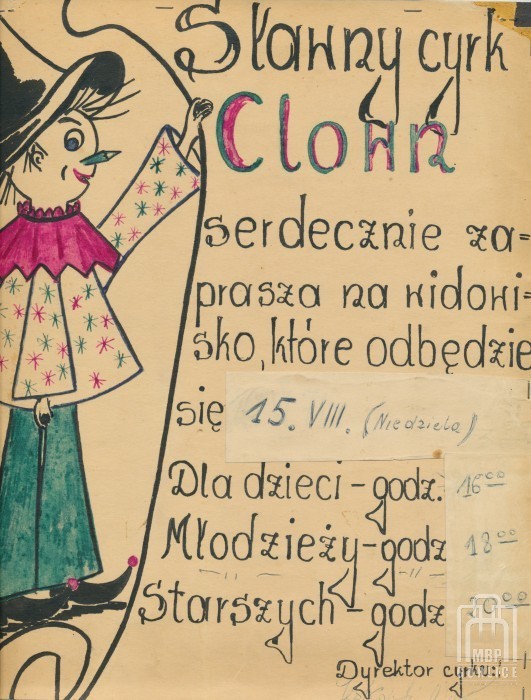 Sławny cyrk
Clown
serdecznie za=
prasza na widowi=
sko, które odbędzie
się 15. VIII. (Niedziela)
Dla dzieci - godz. 16⁰⁰
Młodzieży - godz 18⁰⁰
-11- -11-
Starszych - godz 20⁰⁰
Dyrektor cyrku:
MBP